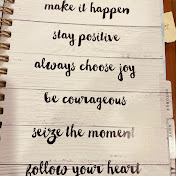 make it happen
stay positive
always choose joy
be courageous
seize the moment
follow your heart